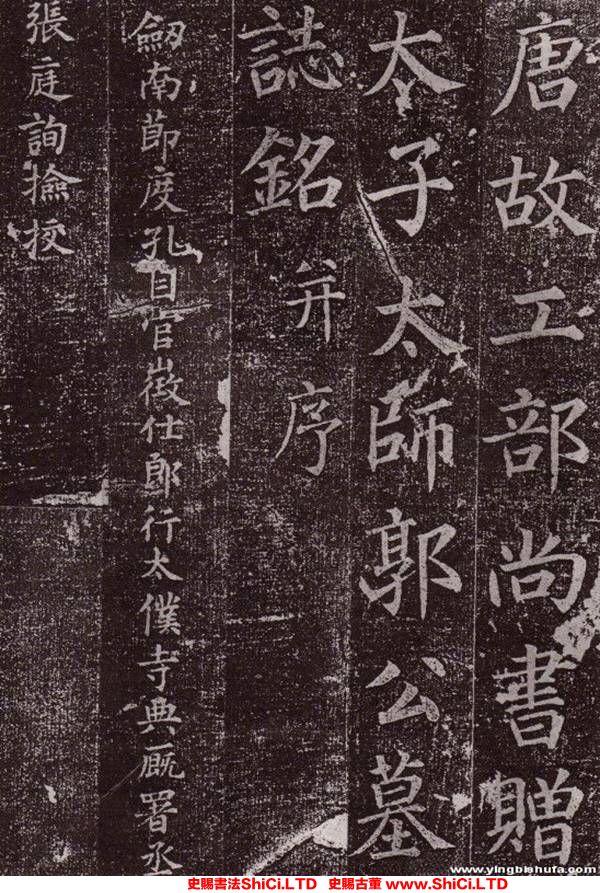 唐故工部尚書贈
太子太師郭公墓
誌銘并序
劒南節度孔目官徵仕郎行太僕寺典廐署丞
張庭詢撿挍
www.yingbishufa.com
史賜書法ShiCi.LTD 史賜古董 www.ShiCi.LTD